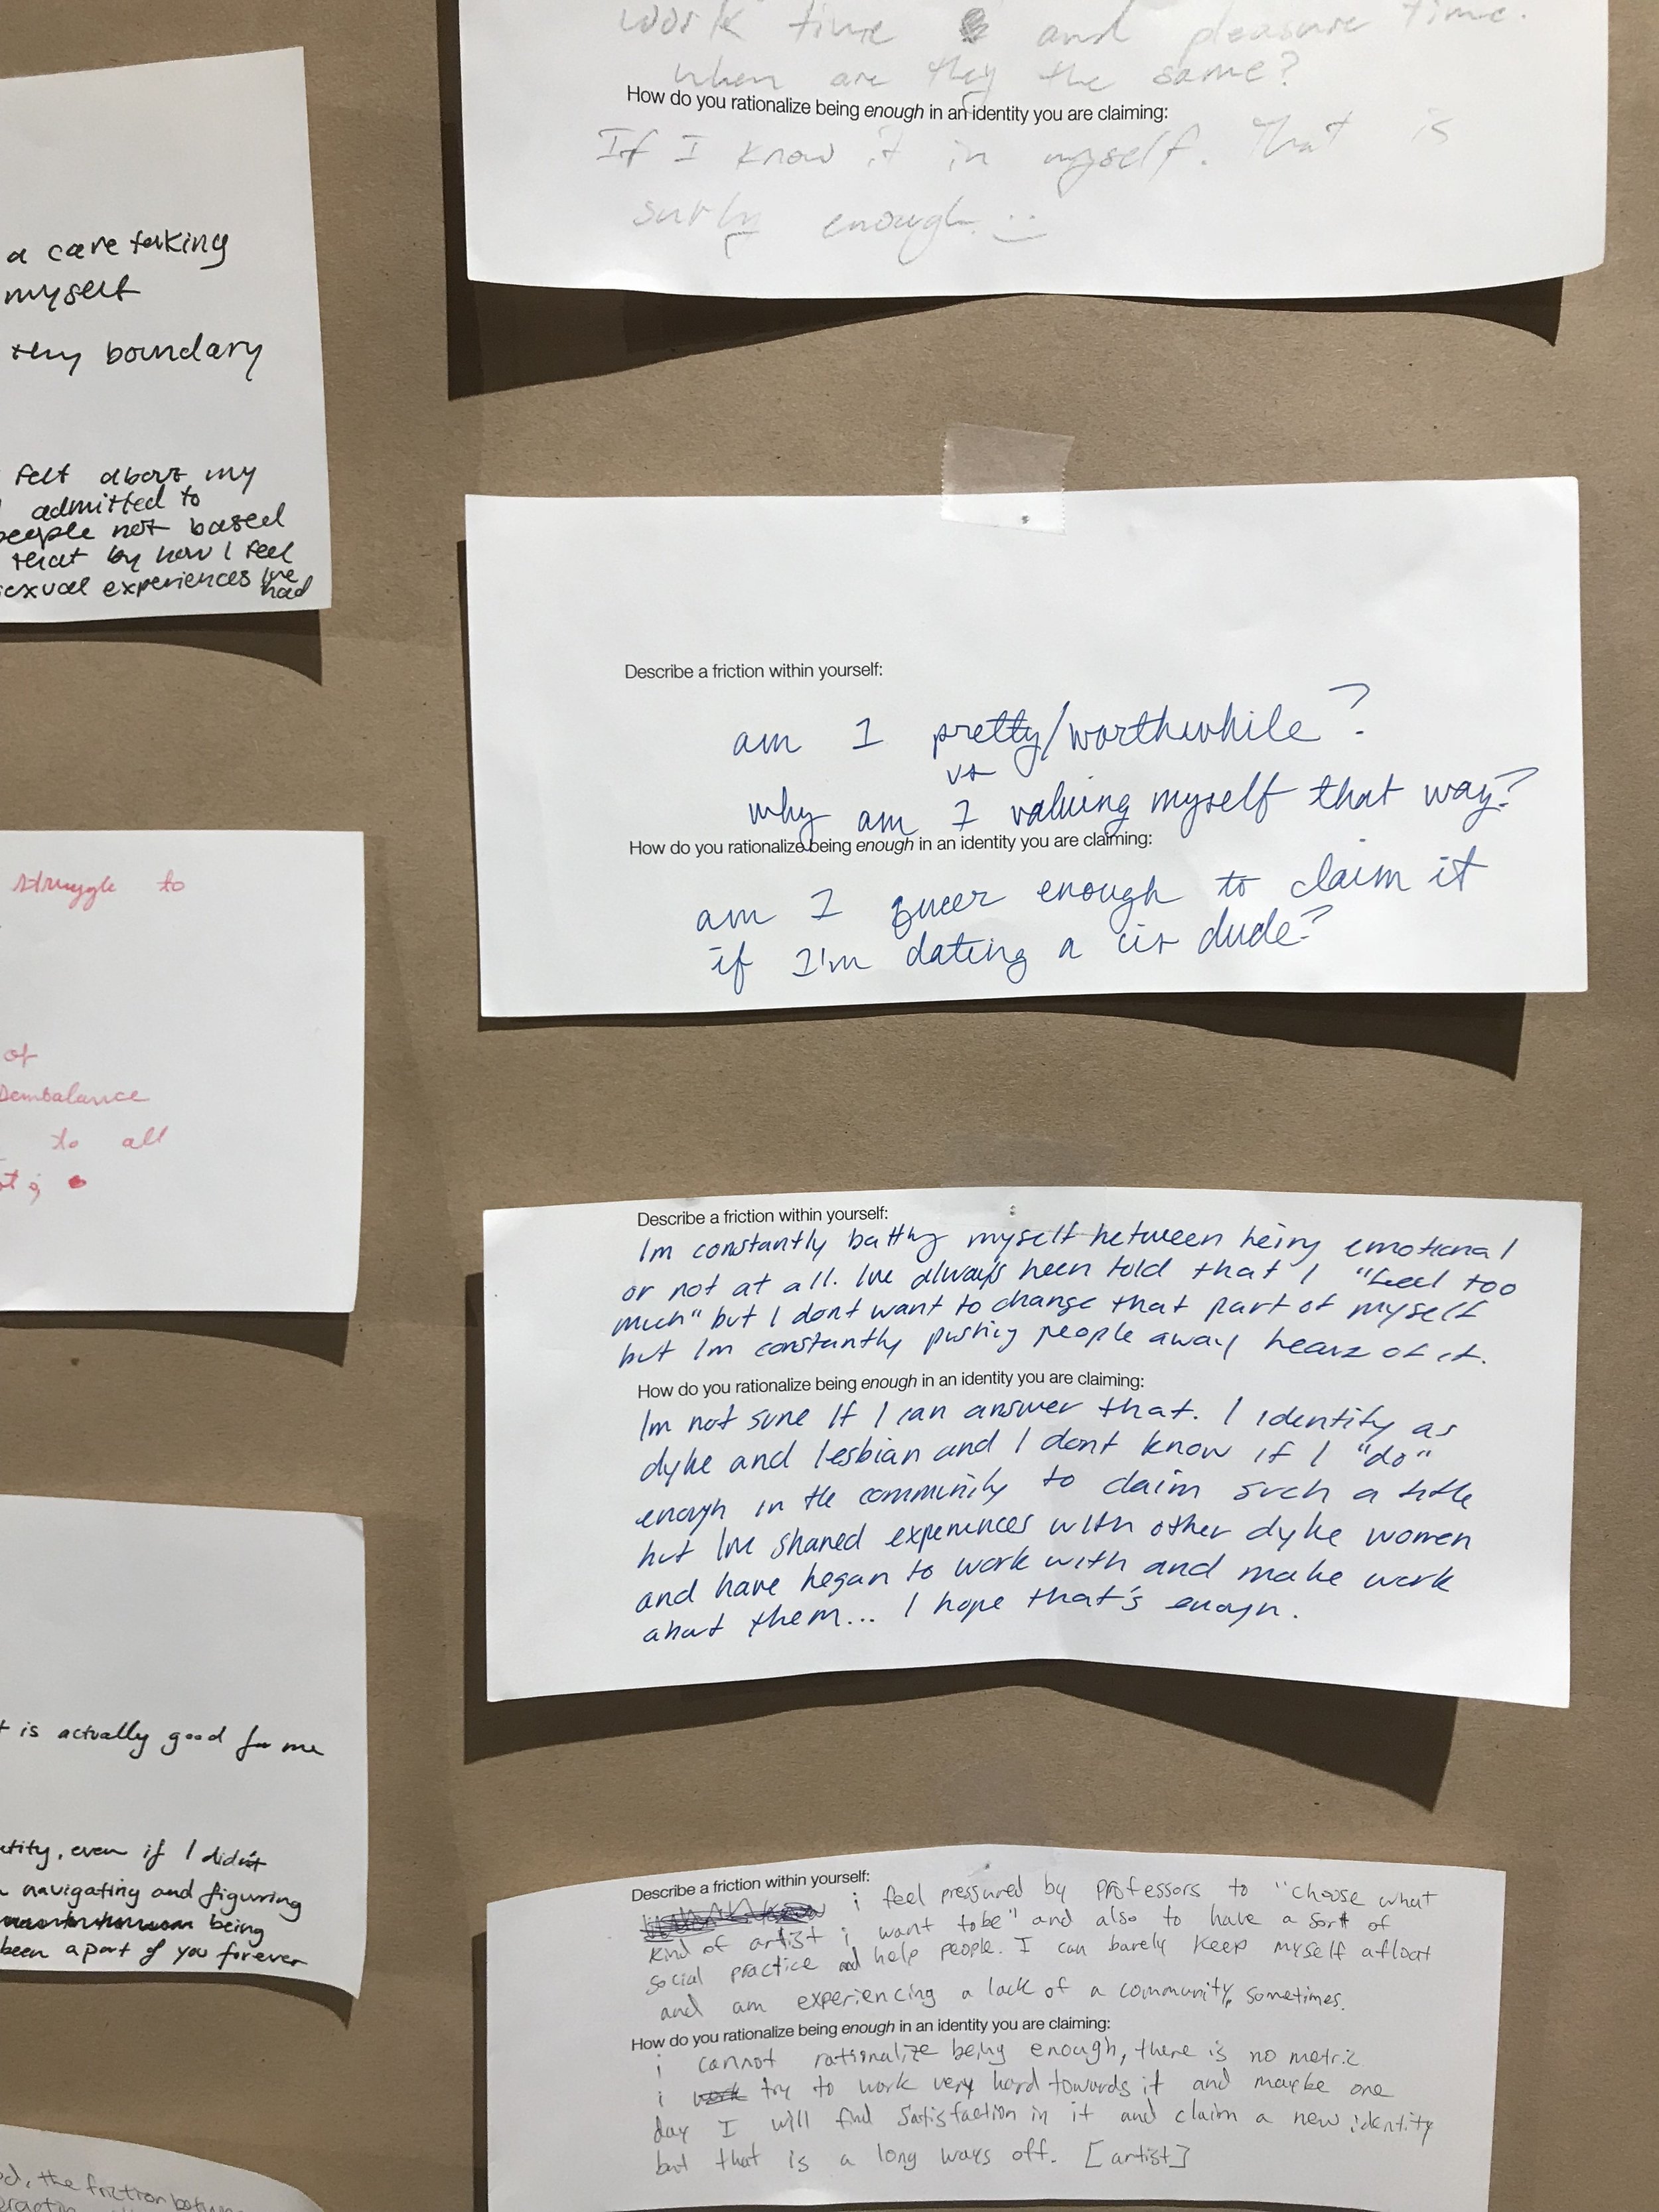 a care taking
myself
boundary
felt about my
admitted to
people not based
that by how I feel
sexual experiences Ive
had
struggle to
of
to all
is actually good for me
even if I didn't
navigating and figuring
being
been a part of you forever
the friction
work time and pleasure time.
when are they the same?
How do you rationalize being enough in an identity you are claiming:
If I know it in myself. That is
surly enough. :)
Describe a friction within yourself:
am I pretty/worthwhile?
vs
why am I valuing myself that way?
How do you rationalize being enough in an identity you are claiming:
am I queer enough to claim it
if I'm dating a cis dude?
Describe a friction within yourself:
Im constantly battling myself between being emotional
or not at all. Ive always been told that I "feel too
much" but I dont want to change that part of myself
but Im constantly pushing people away becuz of it.
How do you rationalize being enough in an identity you are claiming:
Im not sure If I can answer that. I identify as
dyke and lesbian and I dont know if I "do"
enough in the community to claim such a title
but Ive shared experiences with other dyke women
and have began to work with and make work
about them... I hope that's enough.
Describe a friction within yourself:
i feel pressured by professors to "choose what
kind of artist i want to be" and also to have a sort of
social practice and help people. I can barely keep myself afloat
and am experiencing a lack of a community, sometimes.
How do you rationalize being enough in an identity you are claiming:
i cannot rationalize being enough, there is no metric
i work try to work very hard towards it and maybe one
day I will find satisfaction in it and claim a new identity
but that is a long ways off. [artist]